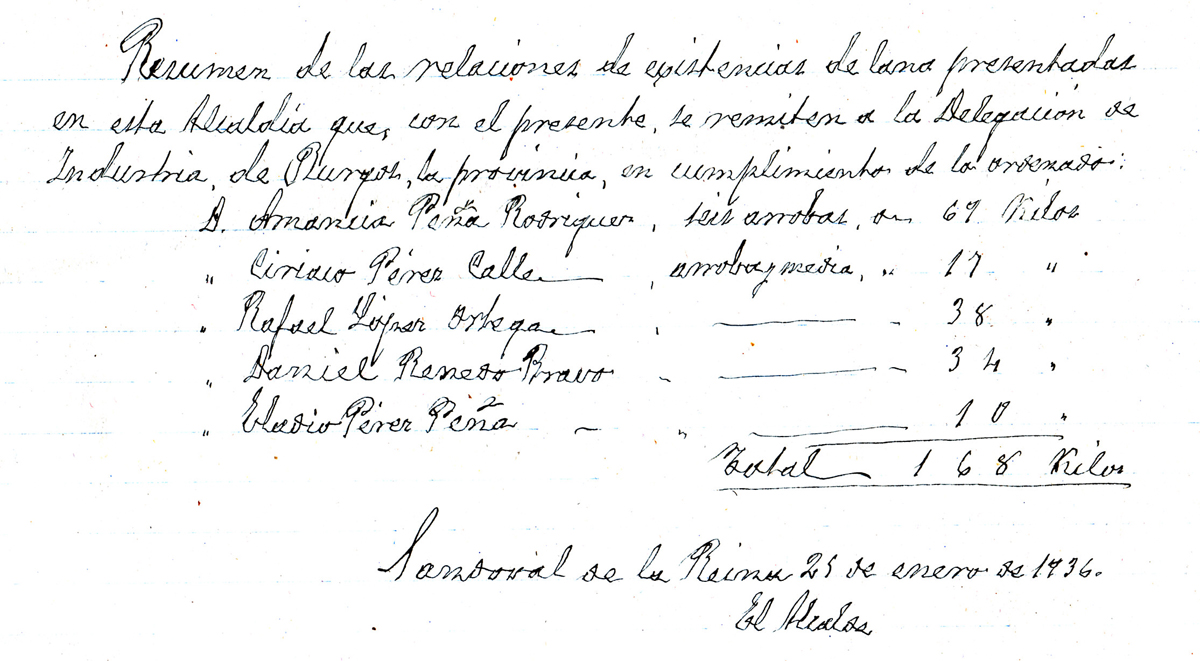 Resumen de las relaciones de existencias de lana presentadas
en esta Alcaldía que, con el presente, se remiten a la Delegación de
Industria, de Burgos, la provincia, en cumplimiento de lo ordenado:
D. Amancia Peña Rodriguez, seis arrobas, o 69 Kilos
" Ciriaco Pérez Calle, arroba y media, " 17 "
" Rafael López Ortega " — 38 "
" Daniel Renedo Bravo " — 34 "
" Eladio Pérez Peña — " — 10 "
Total 168 Kilos
Sandoval de la Reina 25 de enero de 1936.
El Alcalde